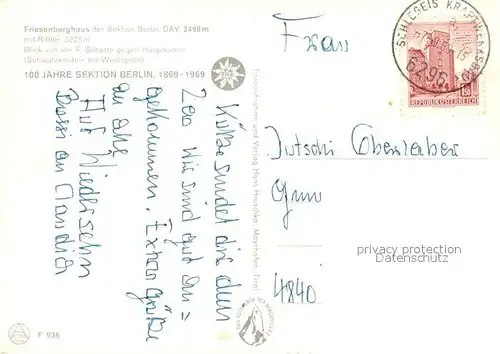 Friesenberghaus der Sektion Berlin DAV 2498m
mit Riffler 3228m
Blick von der P.-Scharte gegen Hauptkamm
(Schwarzenstein bis Weißspitze)
100 JAHRE SEKTION BERLIN, 1869-1969
Küße sendet dir dein
Leo Wir sind gut an=
gekommen. Extra Grüße
an alle
Auf Wiedersehn
Bussi an Claudia
Eigenaufnahme und Verlag Hans Hruschka, Mayrhofen, Tirol
Frau
Jutschi Oberleber
4840
SCHLEGEIS KRAFTWERKSBAU
6296
REPUBLIK ÖSTERREICH
privacy protection
Datenschutz
F 936